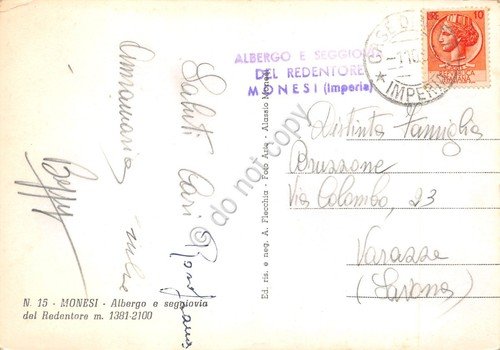 Annamaria
Saluti Cari
Beppe
N. 15 - MONESI - Albergo e seggiovia
del Redentore m. 1381-2100
Ed. ris. e neg. A. Flecchia - Foto Arte - Alassio Monesi
ALBERGO E SEGGIOVIA
DEL REDENTORE
MONESI (Imperia)
IMPERIA
10
Distinta Famiglia
Bruzzone
Via Colombo, 23
Varazze
(Savona)
do not copy